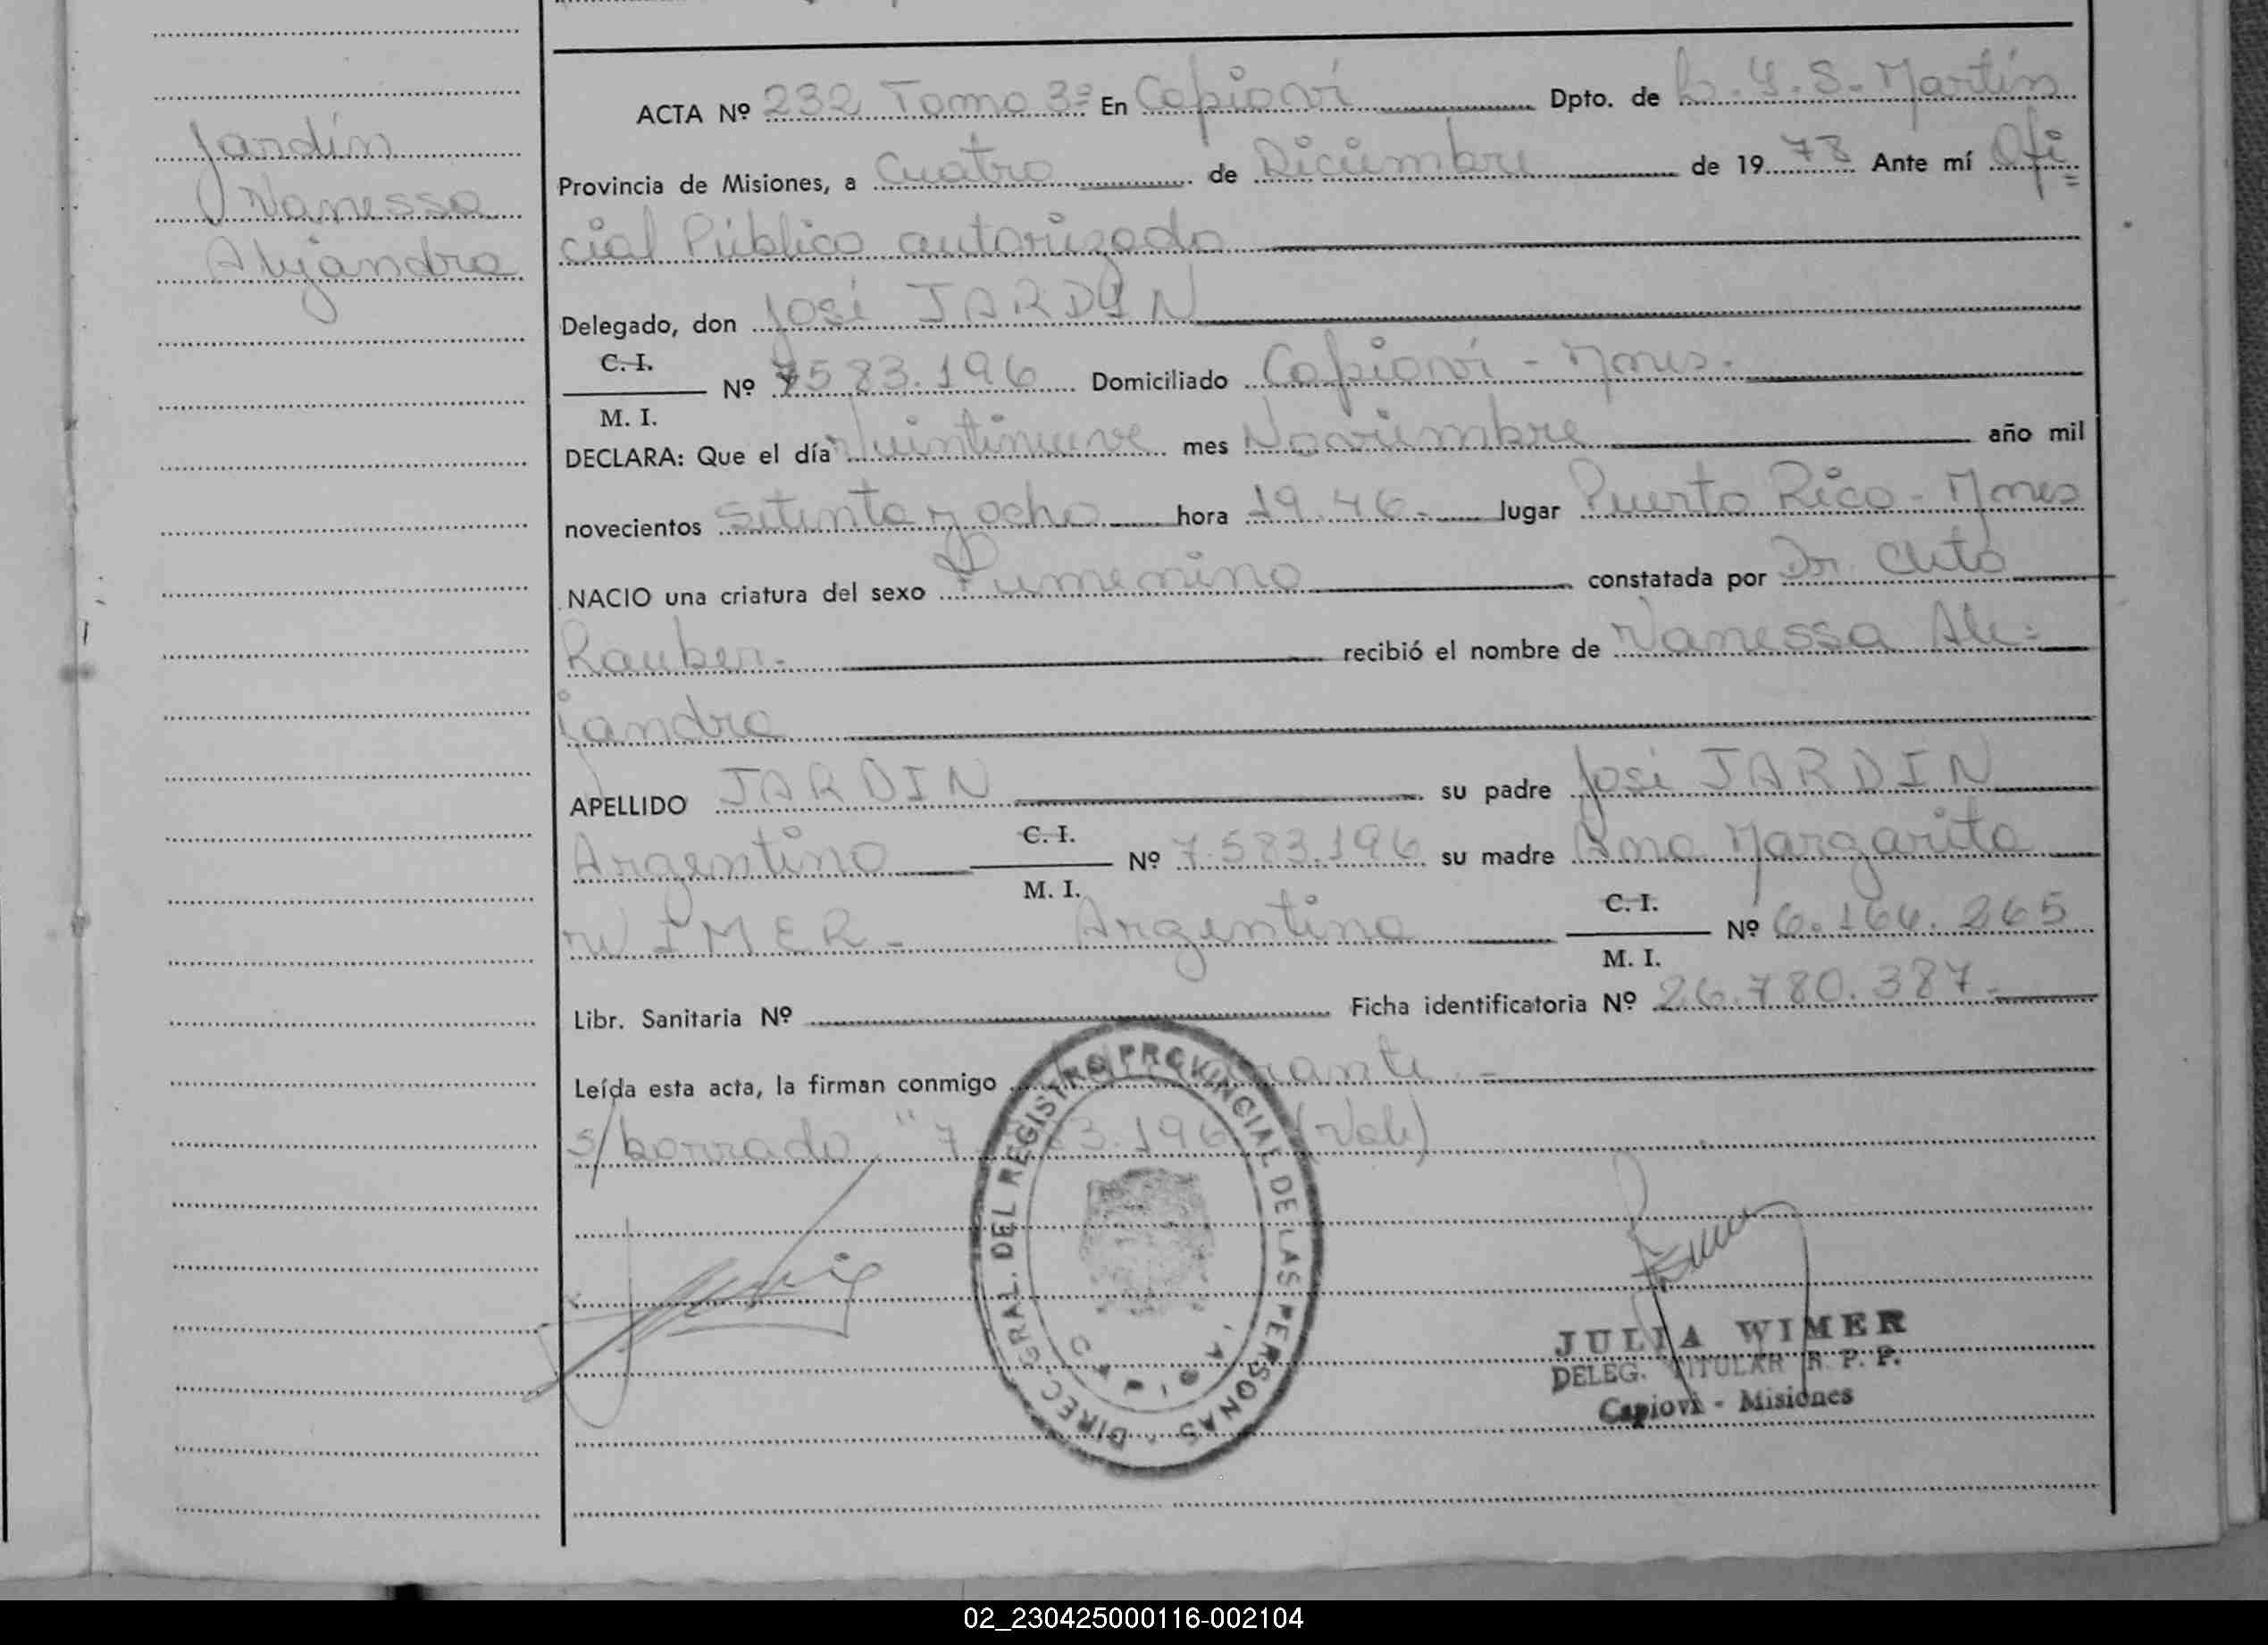 Jardín
Vanessa
Alejandra
ACTA Nº 232 Tomo 3º En Capioví Dpto. de L. G. S. Martín
Provincia de Misiones, a Cuatro de Diciembre de 1978 Ante mí Ofi=
cial Público autorizado
Delegado, don José JARDIN
C. I.
M. I. Nº 7583.196 Domiciliado Capioví - Mnes.
DECLARA: Que el día Veintinueve mes Noviembre año mil
novecientos Setenta y ocho hora 19.46.- lugar Puerto Rico - Mnes
NACIO una criatura del sexo Femenino constatada por Dr. Cleto
Rauber.- recibió el nombre de Vanessa Ale=
jandra
APELLIDO JARDIN su padre José JARDIN
Argentino C. I. M. I. Nº 7.583.196 su madre Ana Margarita
WIMER - Argentina C. I. M. I. Nº 6.164.265
Libr. Sanitaria Nº Ficha identificatoria Nº 26.780.387.-
Leída esta acta, la firman conmigo
s/borrado "7. 3.196 (Vale)
DIREC. GRAL. DEL REGISTRO PROVINCIAL DE LAS PERSONAS
JULIA WIMER
DELEG. TITULAR R. P. P.
Capioví - Misiones
02_230425000116-002104